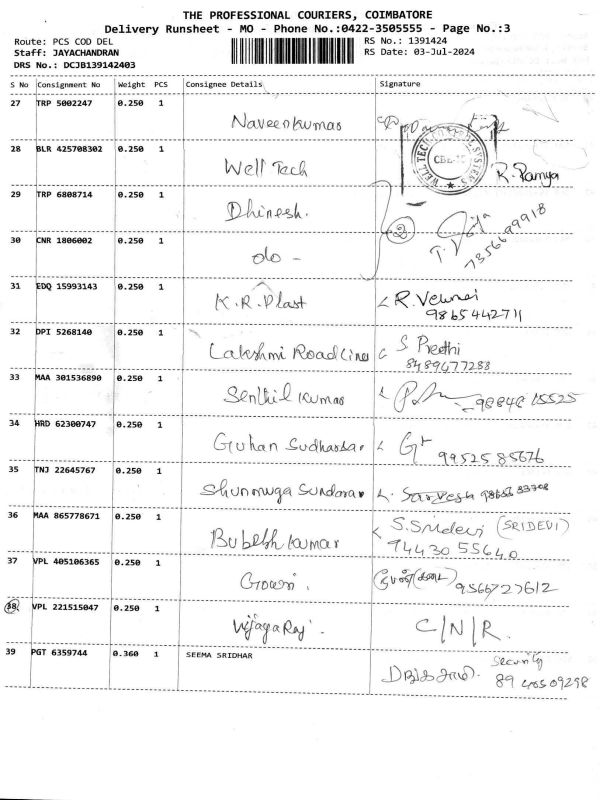 THE PROFESSIONAL COURIERS, COIMBATORE
Delivery Runsheet - MO - Phone No.:0422-3505555 - Page No.:3
Route: PCS COD DEL RS No.: 1391424
Staff: JAYACHANDRAN RS Date: 03-Jul-2024
DRS No.: DCJB139142403
S No Consignment No Weight PCS Consignee Details Signature
27 TRP 5002247 0.250 1 Naveenkumar
28 BLR 425708302 0.250 1 Well Tech R. Ramya
29 TRP 6808714 0.250 1 Dhinesh. 2
30 CNR 1806002 0.250 1 do - 7356699918
31 EDQ 15993143 0.250 1 K.R.Plast R. Velumei
9865442711
32 DPI 5268140 0.250 1 Lakshmi Roadlines S. Preethi
8489677288
33 MAA 301536890 0.250 1 Senthil Kumar 98848 15525
34 HRD 62300747 0.250 1 Guhan Sudharsan 99525 85676
35 TNJ 22645767 0.250 1 Shunmuga Sundaran Sarvesh
36 MAA 865778671 0.250 1 Bubesh Kumar S. Sridevi (SRIDEVI)
94430 55640
37 VPL 405106365 0.250 1 Gowri. 9566727612
38 VPL 221515047 0.250 1 Vijayaraj. C/N/R.
39 PGT 6359744 0.360 1 SEEMA SRIDHAR Security